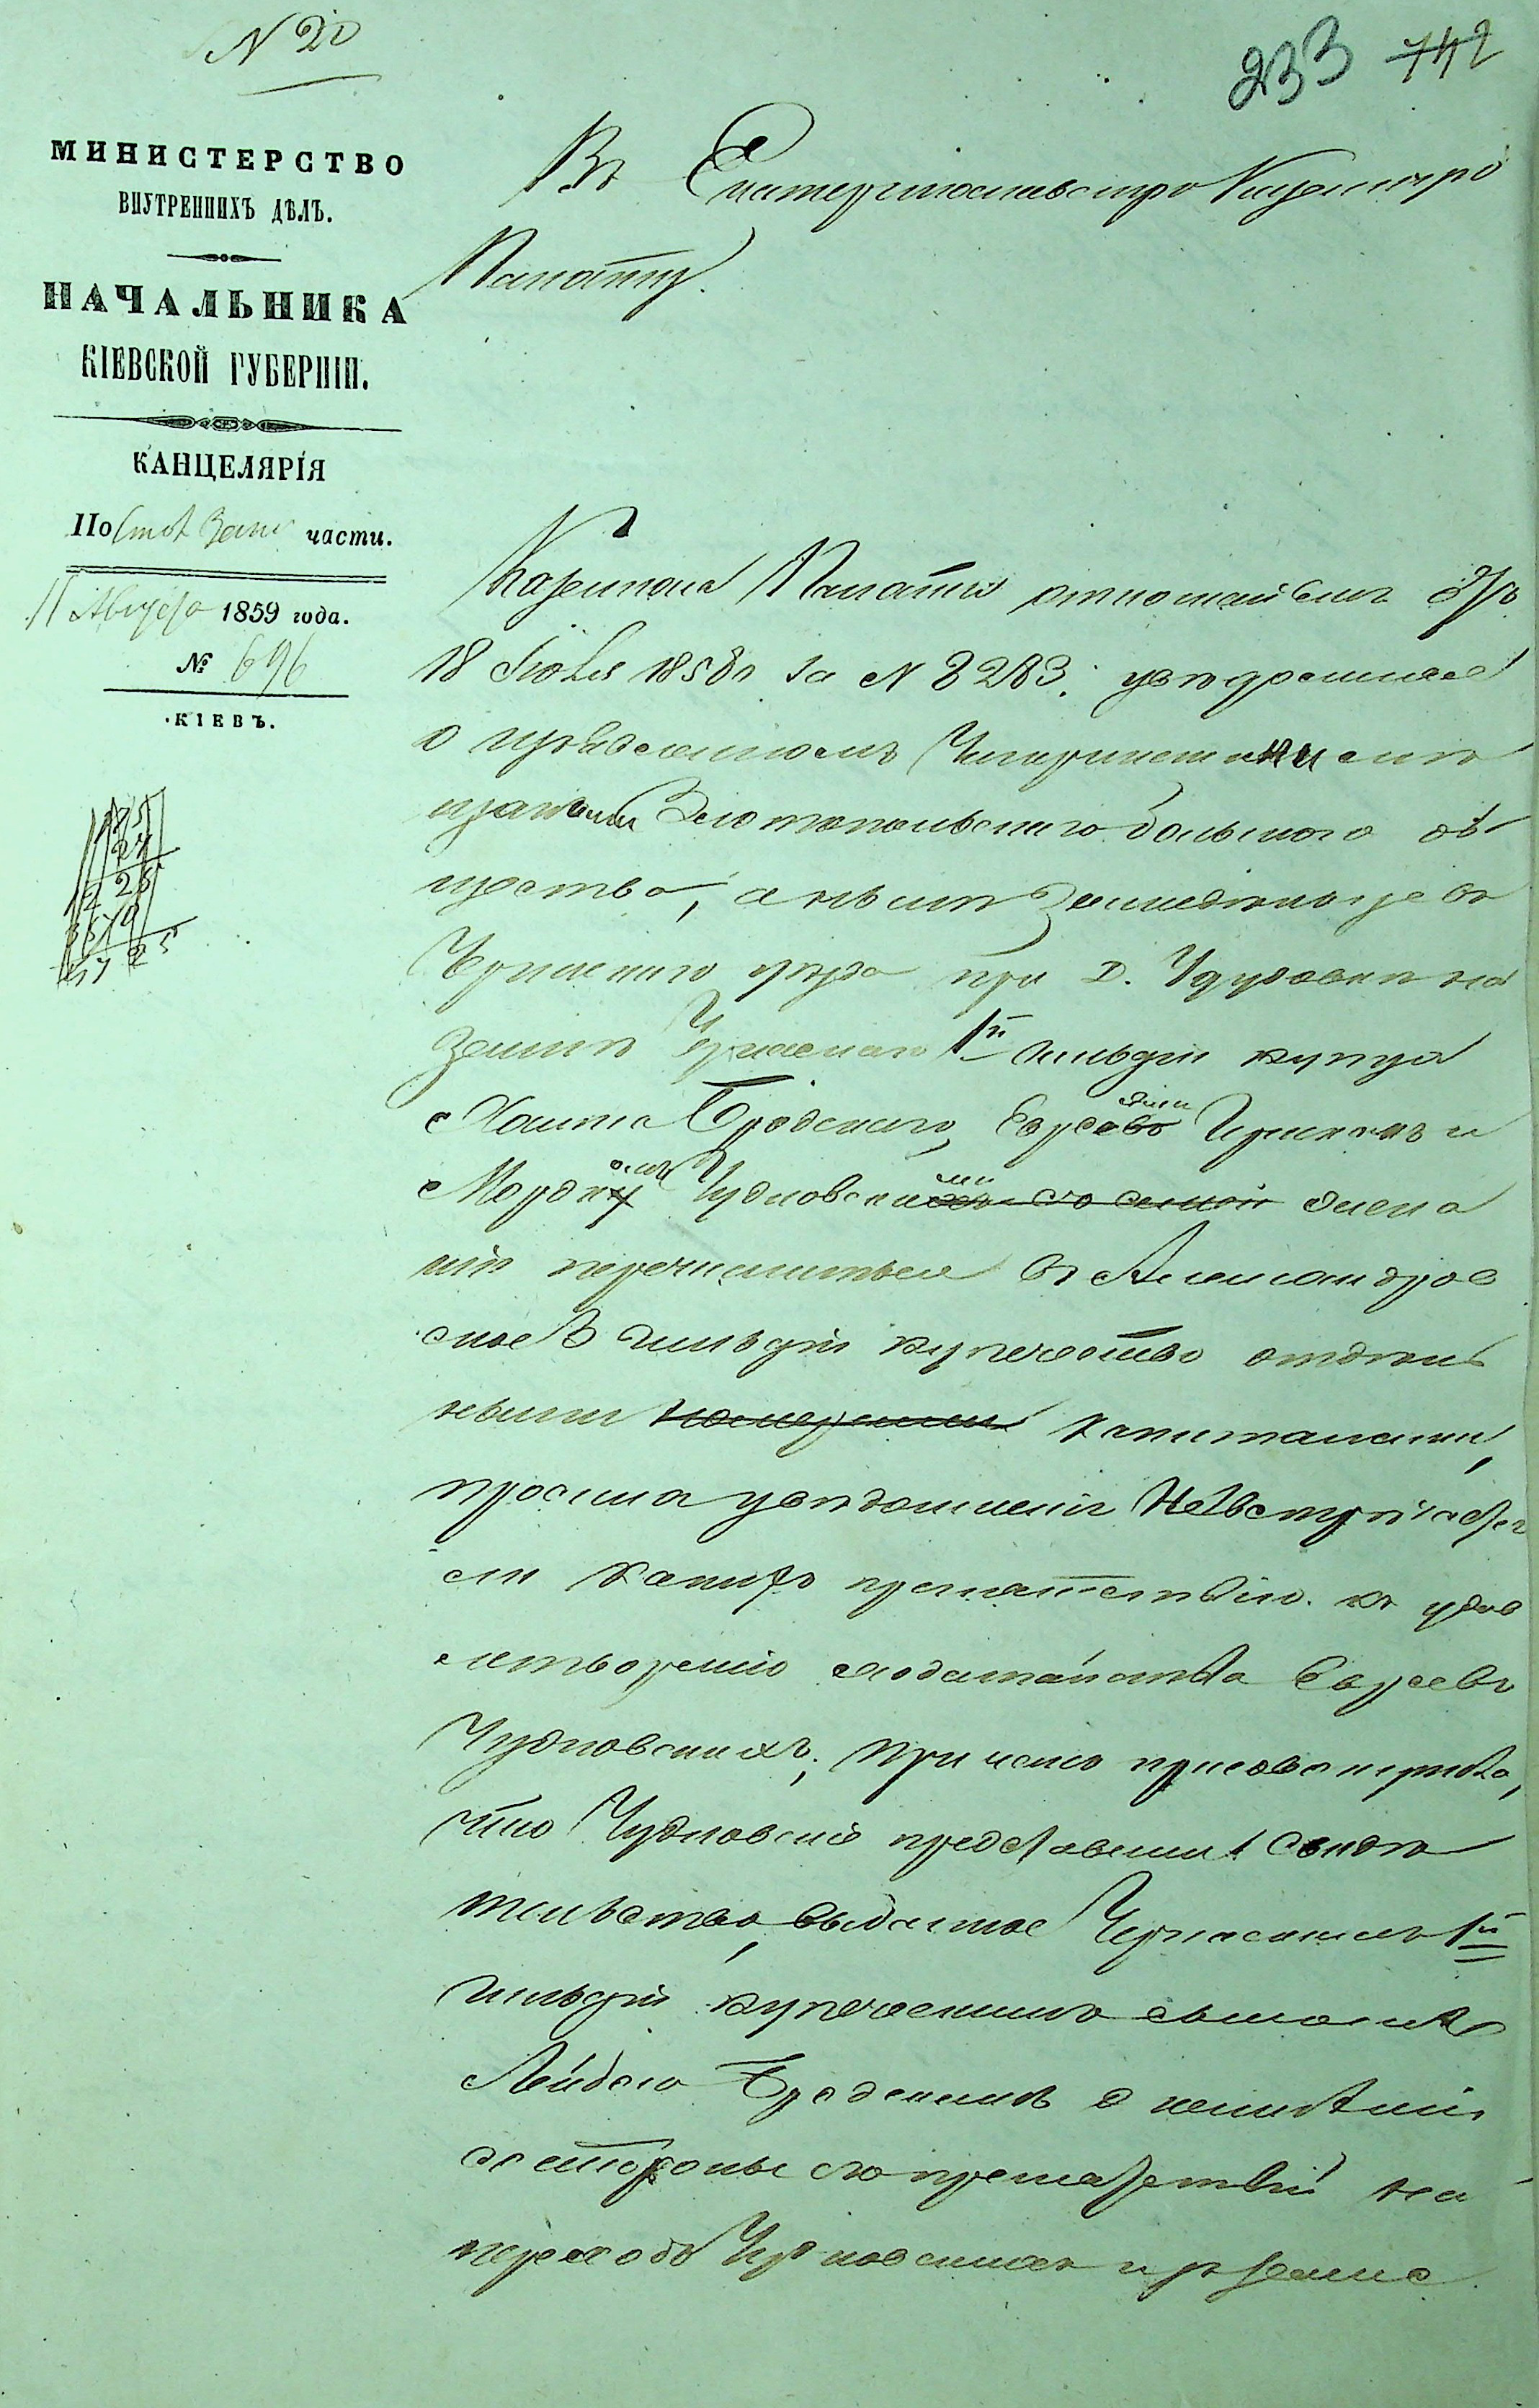 N 20
233 742
МИНИСТЕРСТВО
ВНУТРЕННИХЪ ДѢЛЪ.
НАЧАЛЬНИКА
КІЕВСКОЙ ГУБЕРНІИ.
КАНЦЕЛЯРІЯ
По части.
11 Августа 1859 года.
№ 696
КІЕВЪ.
Въ Екатеринославскую Казенную
Палату.
Казенная Палата отношеніемъ отъ
18 Іюля 1858 г. за N 8283, увѣдомляя
о изъявленномъ
Златопольскаго общества, а нынѣ земледѣльцевъ
Черкаскаго уѣзда при д. на
землѣ Черкаскаго 1й гильдіи купца
Бродскаго, Евреевъ Ицькомъ и
Мордкомъ Чудновскими со семей желаніи
перечислиться въ Александров
ское 3 гильдіи купечество отдѣль
ными капиталами,
просила увѣдомленія не встрѣчается
ли какихъ препятствій къ удов
летворенію ходатайства Евреевъ
Чудновскихъ, при чемъ присовокупила,
что Чудновскіе представили свидѣ
тельство, выданное Черкаскимъ 1й
гильдіи купеческимъ сыномъ
Лейбою Бродскимъ о неимѣніи
съ стороны его препятствій на
переходъ Чудновскихъ